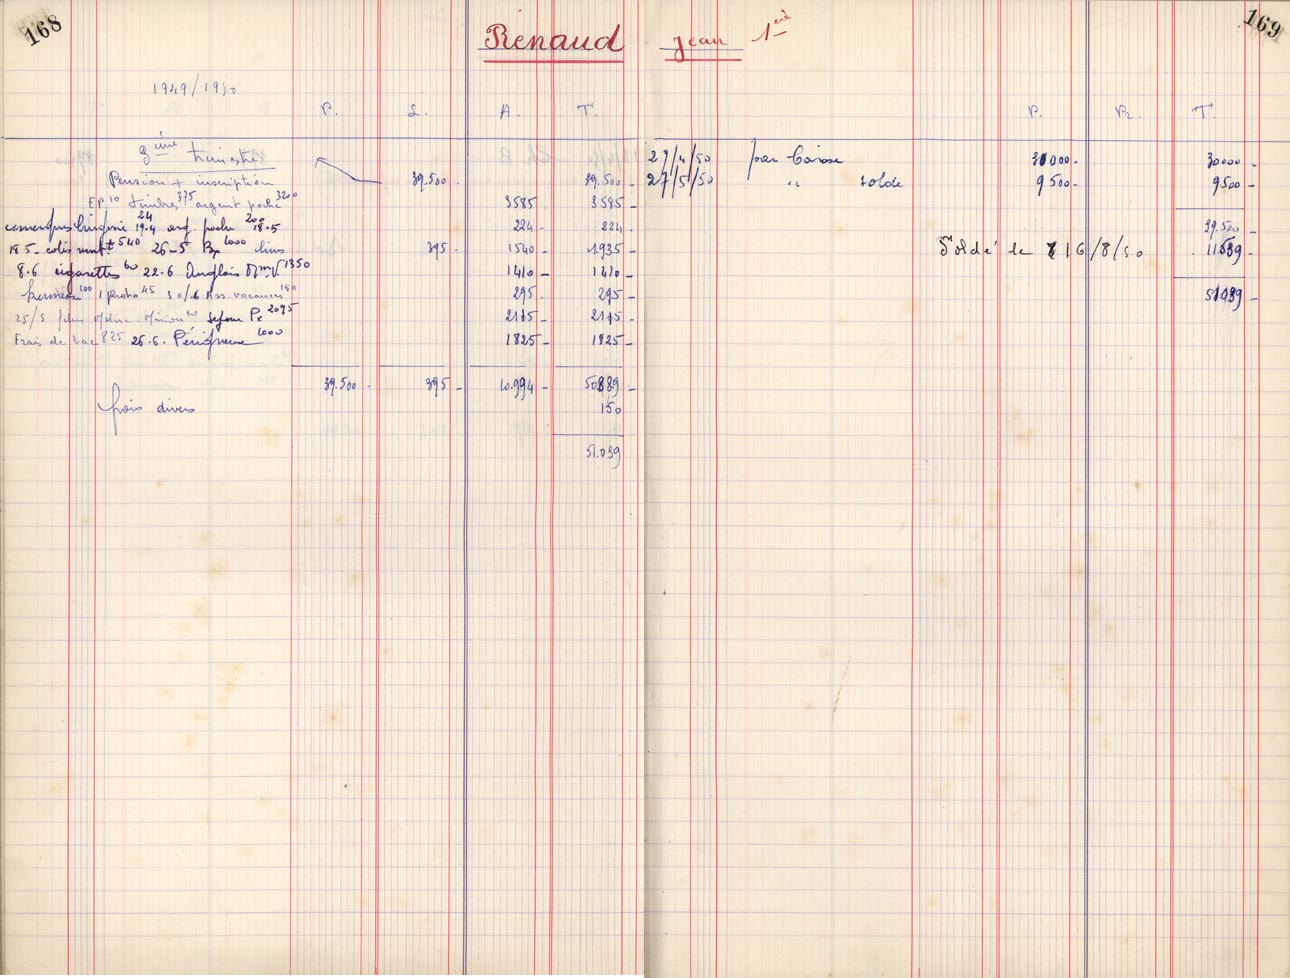 168
Renaud Jean 1ère
169
1949/1950
P. L. A. T.
3ème trimestre
Pension + inscription 39.500 39.500
EP. 10 timbres 375 argent poche 3200 3585 3585
24 19.4 arg. poche 200 18.5 224 224
18.5 540 26-5 1000 livres 395 1540 1935
8.6 cigarettes 60 22.6 Anglais 1350 1410 1410
100 1 photo 45 Ass. vacances 150 295 295
25/5 séjour Px 2095 2115 2115
Frais de bac 825 26.6. Périgueux 1000 1825 1825
39.500 395 10.994 50889
frais divers 150
51.039
P. Pr. T.
27/4/50 par Caisse 30000 30000
27/5/50 " solde 9500 9500
39.500
Soldé le 16/8/50 11539
51039